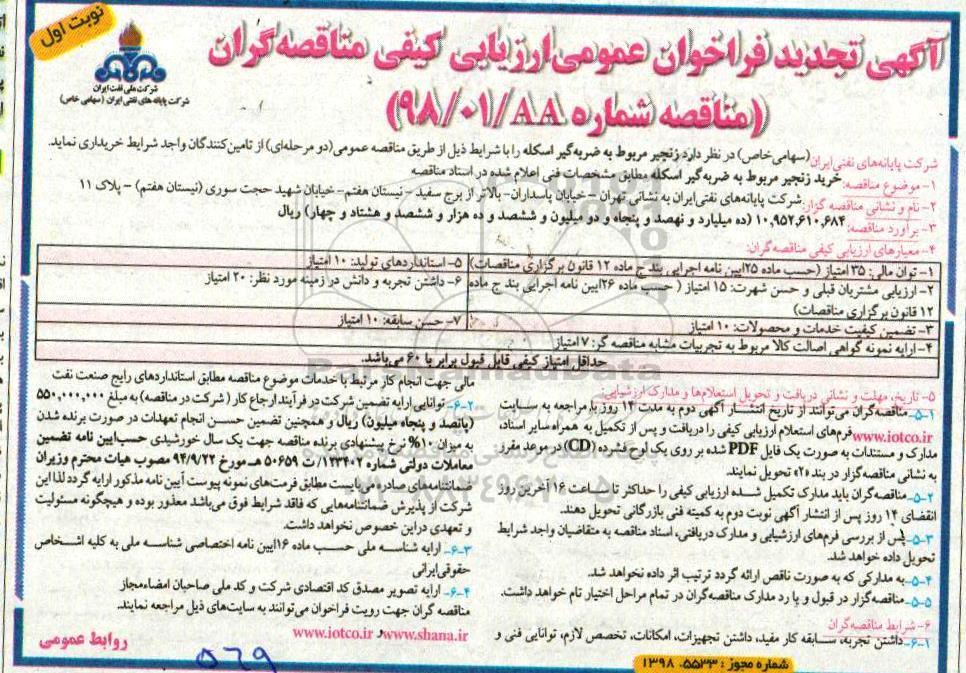 نوبت اول
آگهی تجدید فراخوان عمومی ارزیابی کیفی مناقصه‌گران
(مناقصه شماره ۹۸/۰۱/AA)
شرکت ملی نفت ایران
شرکت پایانه های نفتی ایران (سهامی خاص)
شرکت پایانه‌های نفتی ایران (سهامی خاص) در نظر دارد زنجیر مربوط به ضربه‌گیر اسکله را با شرایط ذیل از طریق مناقصه عمومی (دو مرحله‌ای) از تامین‌کنندگان واجد شرایط خریداری نماید.
۱- موضوع مناقصه: خرید زنجیر مربوط به ضربه‌گیر اسکله مطابق مشخصات فنی اعلام شده در اسناد مناقصه
۲- نام و نشانی مناقصه گزار: شرکت پایانه‌های نفتی‌ایران به نشانی تهران - خیابان پاسداران- بالاتر از برج سفید - نیستان هفتم- خیابان شهید حجت سوری (نیستان هفتم) - پلاک ۱۱
۳- برآورد مناقصه: ۱۰,۹۵۲,۶۱۰,۶۸۴ (ده میلیارد و نهصد و پنجاه و دو میلیون و ششصد و ده هزار و ششصد و هشتاد و چهار) ریال
۴- معیارهای ارزیابی کیفی مناقصه‌گران:
۱- توان مالی: ۳۵ امتیاز (حسب ماده ۲۵آیین نامه اجرایی بند ج ماده ۱۲ قانون برگزاری مناقصات)
۵- استانداردهای تولید: ۱۰ امتیاز
۲- ارزیابی مشتریان قبلی و حسن شهرت: ۱۵ امتیاز ( حسب ماده ۲۶آیین نامه اجرایی بند ج ماده
۱۲ قانون برگزاری مناقصات)
۶- داشتن تجربه و دانش در زمینه مورد نظر: ۲۰ امتیاز
۳- تضمین کیفیت خدمات و محصولات: ۱۰ امتیاز
۷- حسن سابقه: ۱۰ امتیاز
۴- ارایه نمونه گواهی اصالت کالا مربوط به تجربیات مشابه مناقصه گر: ۷ امتیاز
حداقل امتیاز کیفی قابل قبول برابر با ۶۰ می‌باشد.
۵- تاریخ، مهلت و نشانی دریافت و تحویل استعلام‌ها و مدارک ارزشیابی:
۵-۱- مناقصه‌گران می‌توانند از تاریخ انتشار آگهی دوم به مدت ۱۴ روز با مراجعه به سایت
www.iotco.ir فرم‌های استعلام ارزیابی کیفی را دریافت و پس از تکمیل به همراه سایر اسناد،
مدارک و مستندات به صورت یک فایل PDF شده بر روی یک لوح فشرده (CD) در موعد مقرر
به نشانی مناقصه‌گزار در بند «۲» تحویل نمایند.
۵-۲- مناقصه‌گران باید مدارک تکمیل شده ارزیابی کیفی را حداکثر تا ساعت ۱۶ آخرین روز
انقضای ۱۴ روز پس از انتشار آگهی نوبت دوم به کمیته فنی بازرگانی تحویل دهند.
۵-۳- پس از بررسی فرم‌های ارزشیابی و مدارک دریافتی، اسناد مناقصه به متقاضیان واجد شرایط
تحویل داده خواهد شد.
۵-۴- به مدارکی که به صورت ناقص ارائه گردد ترتیب اثر داده نخواهد شد.
۵-۵- مناقصه‌گزار در قبول و یا رد مدارک مناقصه‌گران در تمام مراحل اختیار تام خواهد داشت.
۶- شرایط مناقصه‌گران
۶-۱- داشتن تجربه، سابقه کار مفید، داشتن تجهیزات، امکانات، تخصص لازم، توانایی فنی و
مالی جهت انجام کار مرتبط با خدمات موضوع مناقصه مطابق استانداردهای رایج صنعت نفت
۶-۲- توانایی ارایه تضمین شرکت در فرآیند ارجاع کار ( شرکت در مناقصه) به مبلغ ۵۵۰,۰۰۰,۰۰۰
(پانصد و پنجاه میلیون) ریال و همچنین تضمین حسن انجام تعهدات در صورت برنده شدن
به میزان ۱۰% نرخ پیشنهادی برنده مناقصه جهت یک سال خورشیدی حسب‌آیین نامه تضمین
معاملات دولتی شماره ۱۲۳۴۰۲/ت ۵۰۶۵۹ هـ مورخ ۹۴/۹/۲۲ مصوب هیات محترم وزیران
ضمانتنامه‌های صادره می‌بایست مطابق فرمت‌های نمونه پیوست آیین نامه مذکور ارایه گردد لذا این
شرکت از پذیرش ضمانتنامه‌هایی که فاقد شرایط فوق می‌باشد معذور بوده و هیچگونه مسئولیت
و تعهدی دراین خصوص نخواهد داشت.
۶-۳- ارایه شناسه ملی حسب ماده ۱۶آیین نامه اختصاصی شناسه ملی به کلیه اشخاص
حقوقی‌ایرانی
۶-۴- ارایه تصویر مصدق کد اقتصادی شرکت و کد ملی صاحبان امضاءمجاز
مناقصه گران جهت رویت فراخوان می‌توانند به سایت‌های ذیل مراجعه نمایند.
www.shana.ir و www.iotco.ir
روابط عمومی
شماره مجوز : ۱۳۹۸.۵۵۳۳
۵۲۹
ParsNamadData